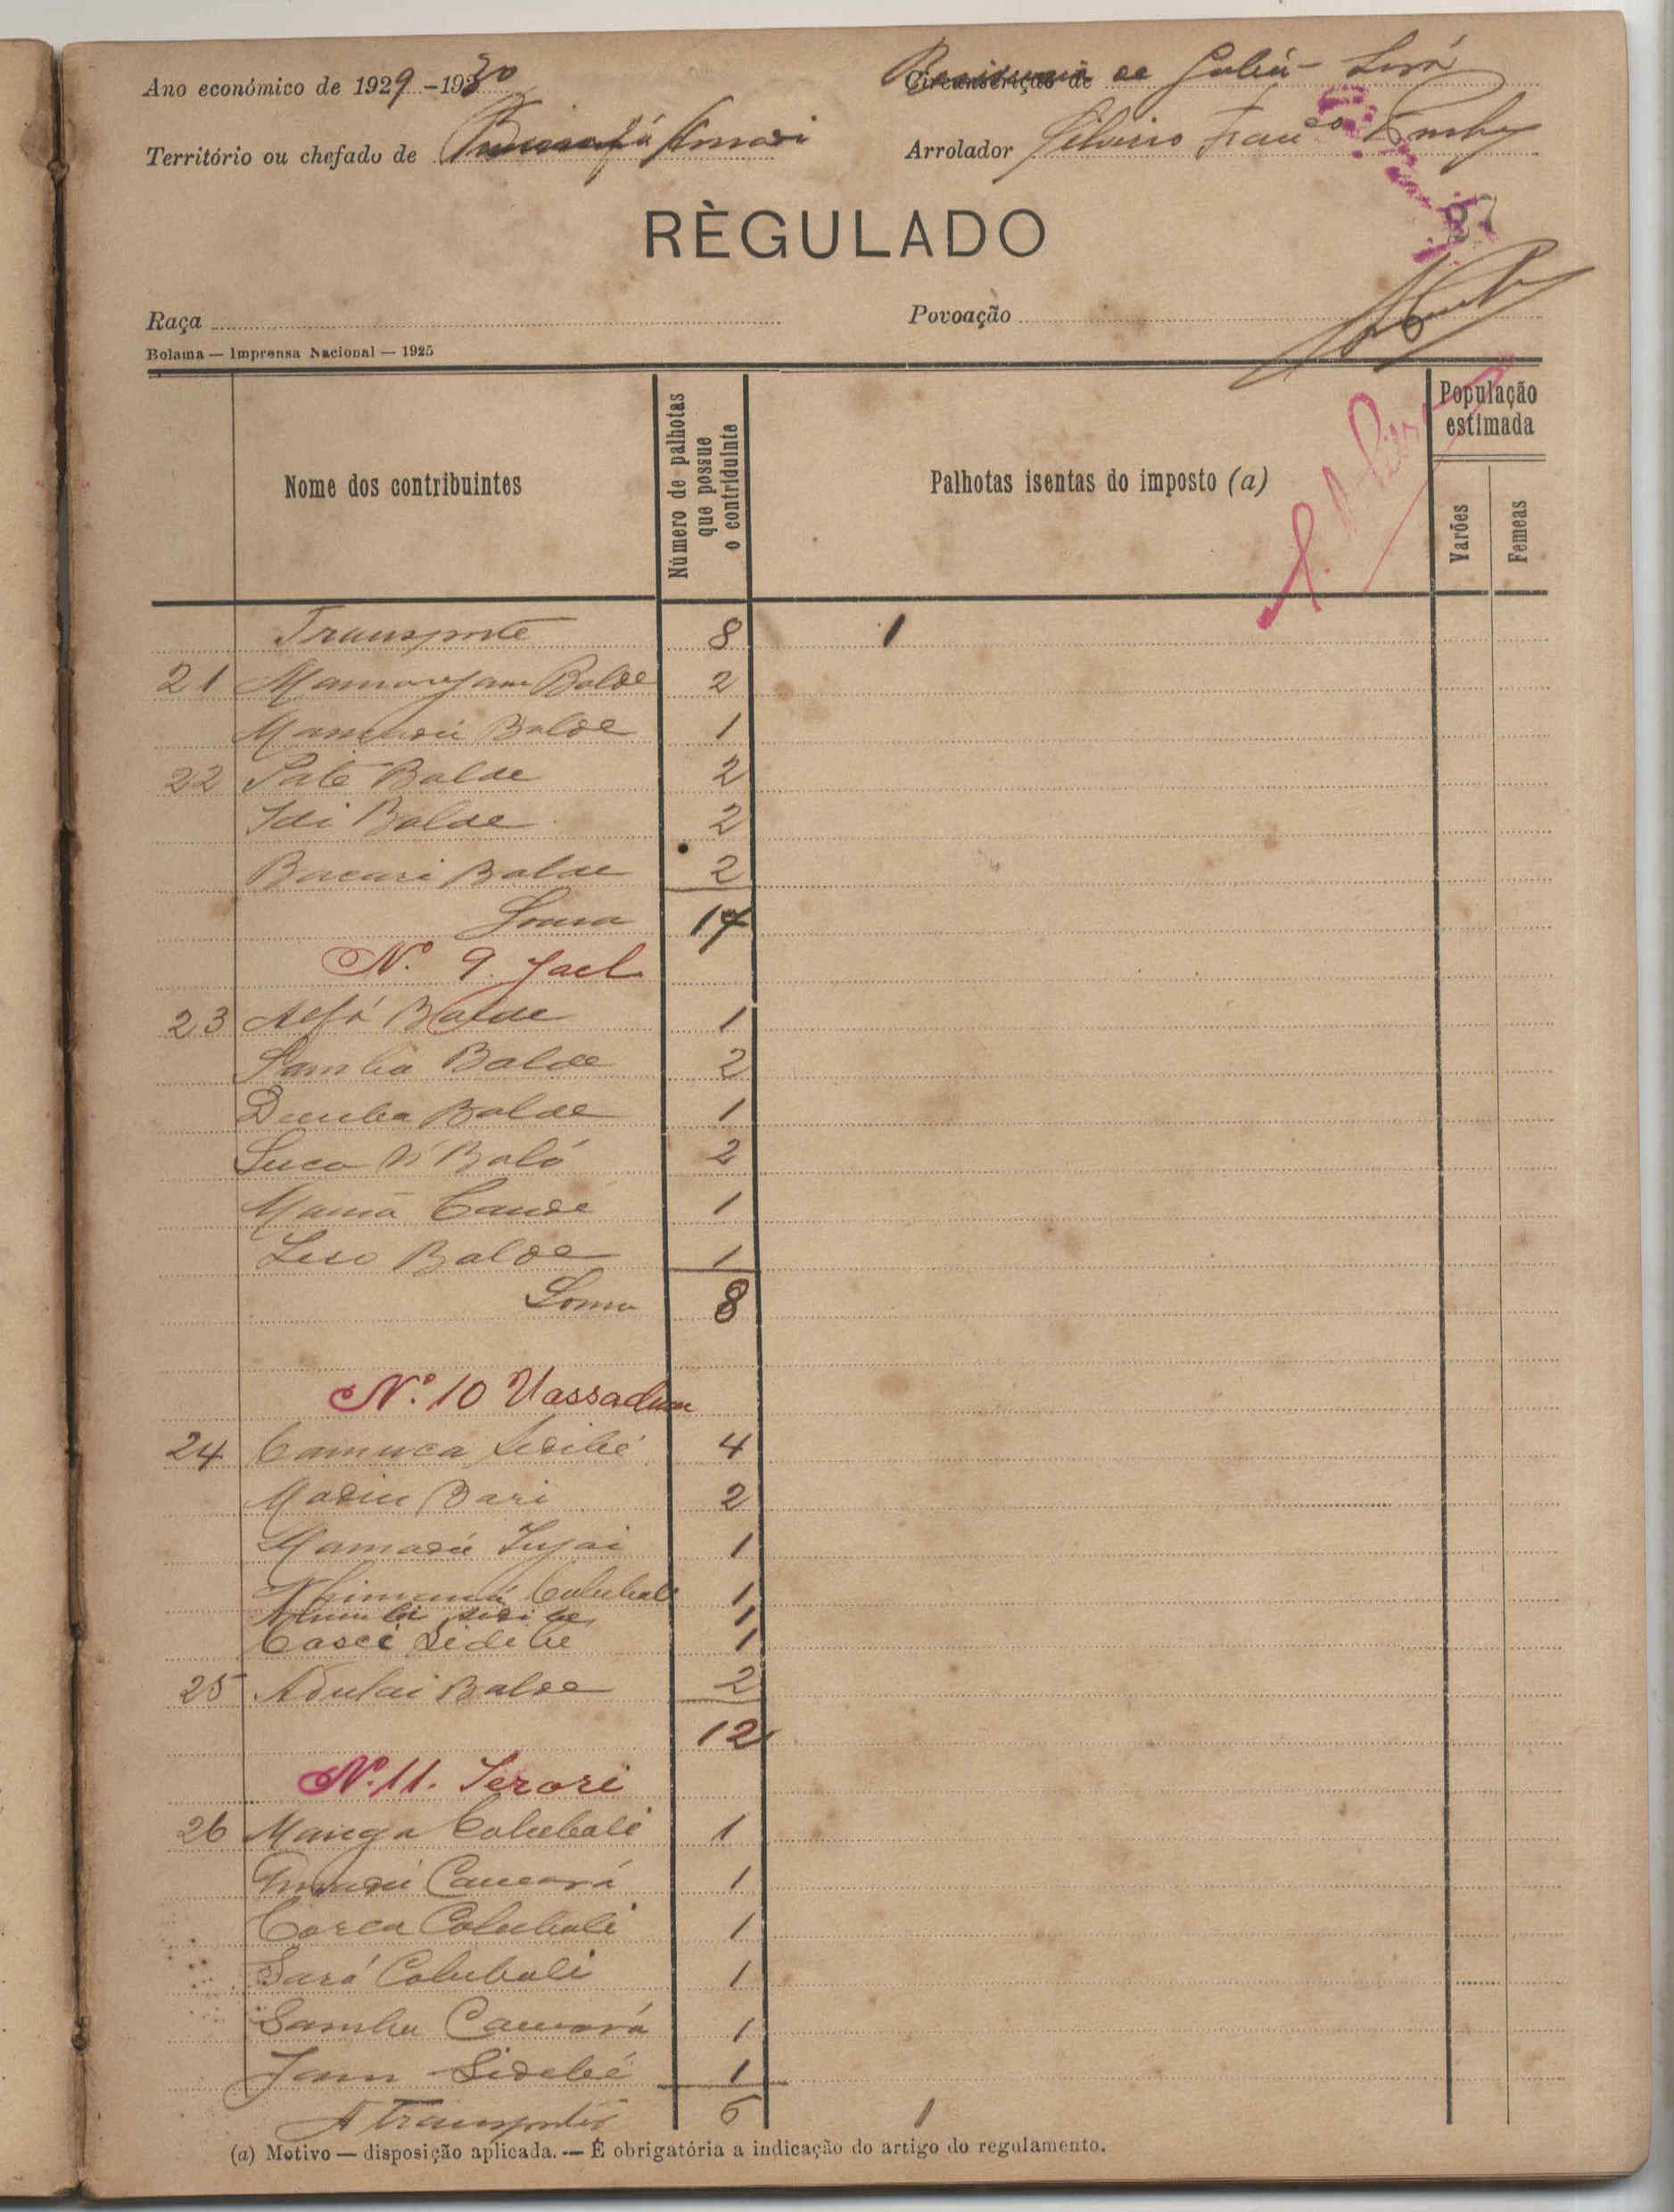 Ano económico de 1929-1930
Circunscrição de
Território ou chefado de
Arrolador
RÈGULADO
27
Raça
Povoação
Bolama — Imprensa Nacional — 1925
Nome dos contribuintes
Número de palhotas que possue o contriduinte
Palhotas isentas do imposto (a)
População estimada
Varões
Femeas
Transporte 8 1
21 Balde 2
Mamadú Balde 1
22 Pate Balde 2
Idi Balde 2
Bacari Balde 2
Soma 17
N.º 9. Jael
23 Alfá Balde 1
Samba Balde 2
Demba Balde 1
Baló 2
Candé 1
Balde 1
Soma 8
N.º 10 Vassadum
24 Camuca Sidibé 4
Madiu Bari 2
Mamadú 1
Colubali 1
Sidibe 1
Sidibe 1
25 Adulai Balde 2
12
N.º 11. Serori
26 Manga Colubali 1
Camará 1
Corca Colubali 1
Sará Colubali 1
Samba Camará 1
Sidibé 1
A Transportar 6 1
(a) Motivo — disposição aplicada. — É obrigatória a indicação do artigo do regulamento.